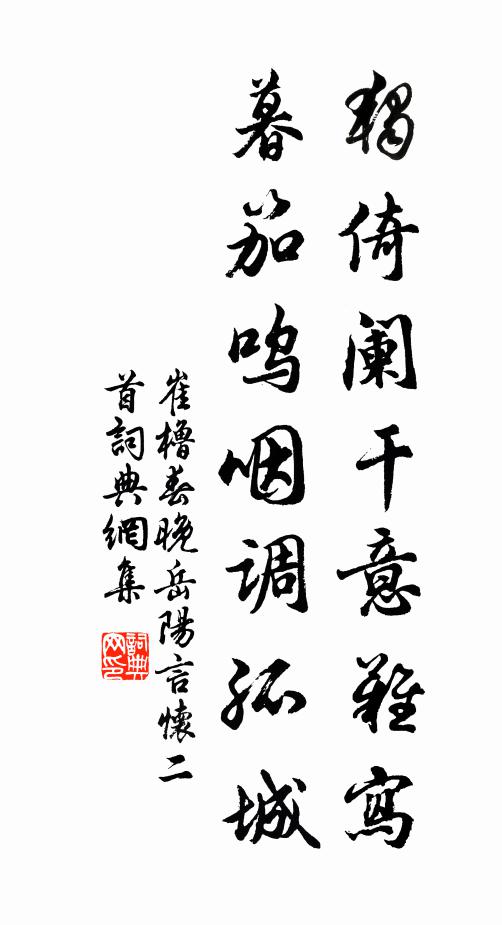 獨倚阑干意難寫
暮笳嗚咽調孤城
崔櫓春晚岳陽言懷二
首詞典網集
詞典
网印